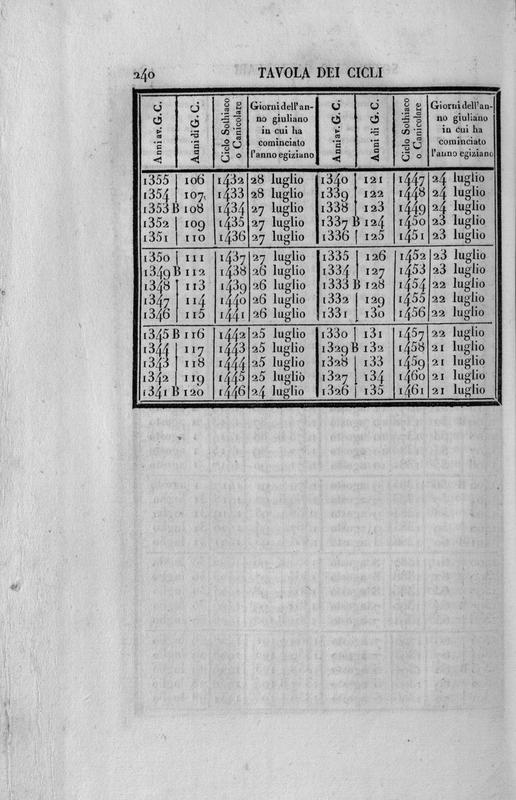 240 TAVOLA DEI CICLI
Anni av. G. C. | Anni di G. C. | Ciclo Sothiaco o Canicolare | Giorni dell'anno giuliano in cui ha cominciato l'anno egiziano | Anni av. G. C. | Anni di G. C. | Ciclo Sothiaco o Canicolare | Giorni dell'anno giuliano in cui ha cominciato l'anno egiziano
1355 | 106 | 1432 | 28 luglio | 1340 | 121 | 1447 | 24 luglio
1354 | 107 | 1433 | 28 luglio | 1339 | 122 | 1448 | 24 luglio
1353 B 108 | 1434 | 27 luglio | 1338 | 123 | 1449 | 24 luglio
1352 | 109 | 1435 | 27 luglio | 1337 B 124 | 1450 | 23 luglio
1351 | 110 | 1436 | 27 luglio | 1336 | 125 | 1451 | 23 luglio
1350 | 111 | 1437 | 27 luglio | 1335 | 126 | 1452 | 23 luglio
1349 B 112 | 1438 | 26 luglio | 1334 | 127 | 1453 | 23 luglio
1348 | 113 | 1439 | 26 luglio | 1333 B 128 | 1454 | 22 luglio
1347 | 114 | 1440 | 26 luglio | 1332 | 129 | 1455 | 22 luglio
1346 | 115 | 1441 | 26 luglio | 1331 | 130 | 1456 | 22 luglio
1345 B 116 | 1442 | 25 luglio | 1330 | 131 | 1457 | 22 luglio
1344 | 117 | 1443 | 25 luglio | 1329 B 132 | 1458 | 21 luglio
1343 | 118 | 1444 | 25 luglio | 1328 | 133 | 1459 | 21 luglio
1342 | 119 | 1445 | 25 luglio | 1327 | 134 | 1460 | 21 luglio
1341 B 120 | 1446 | 24 luglio | 1326 | 135 | 1461 | 21 luglio